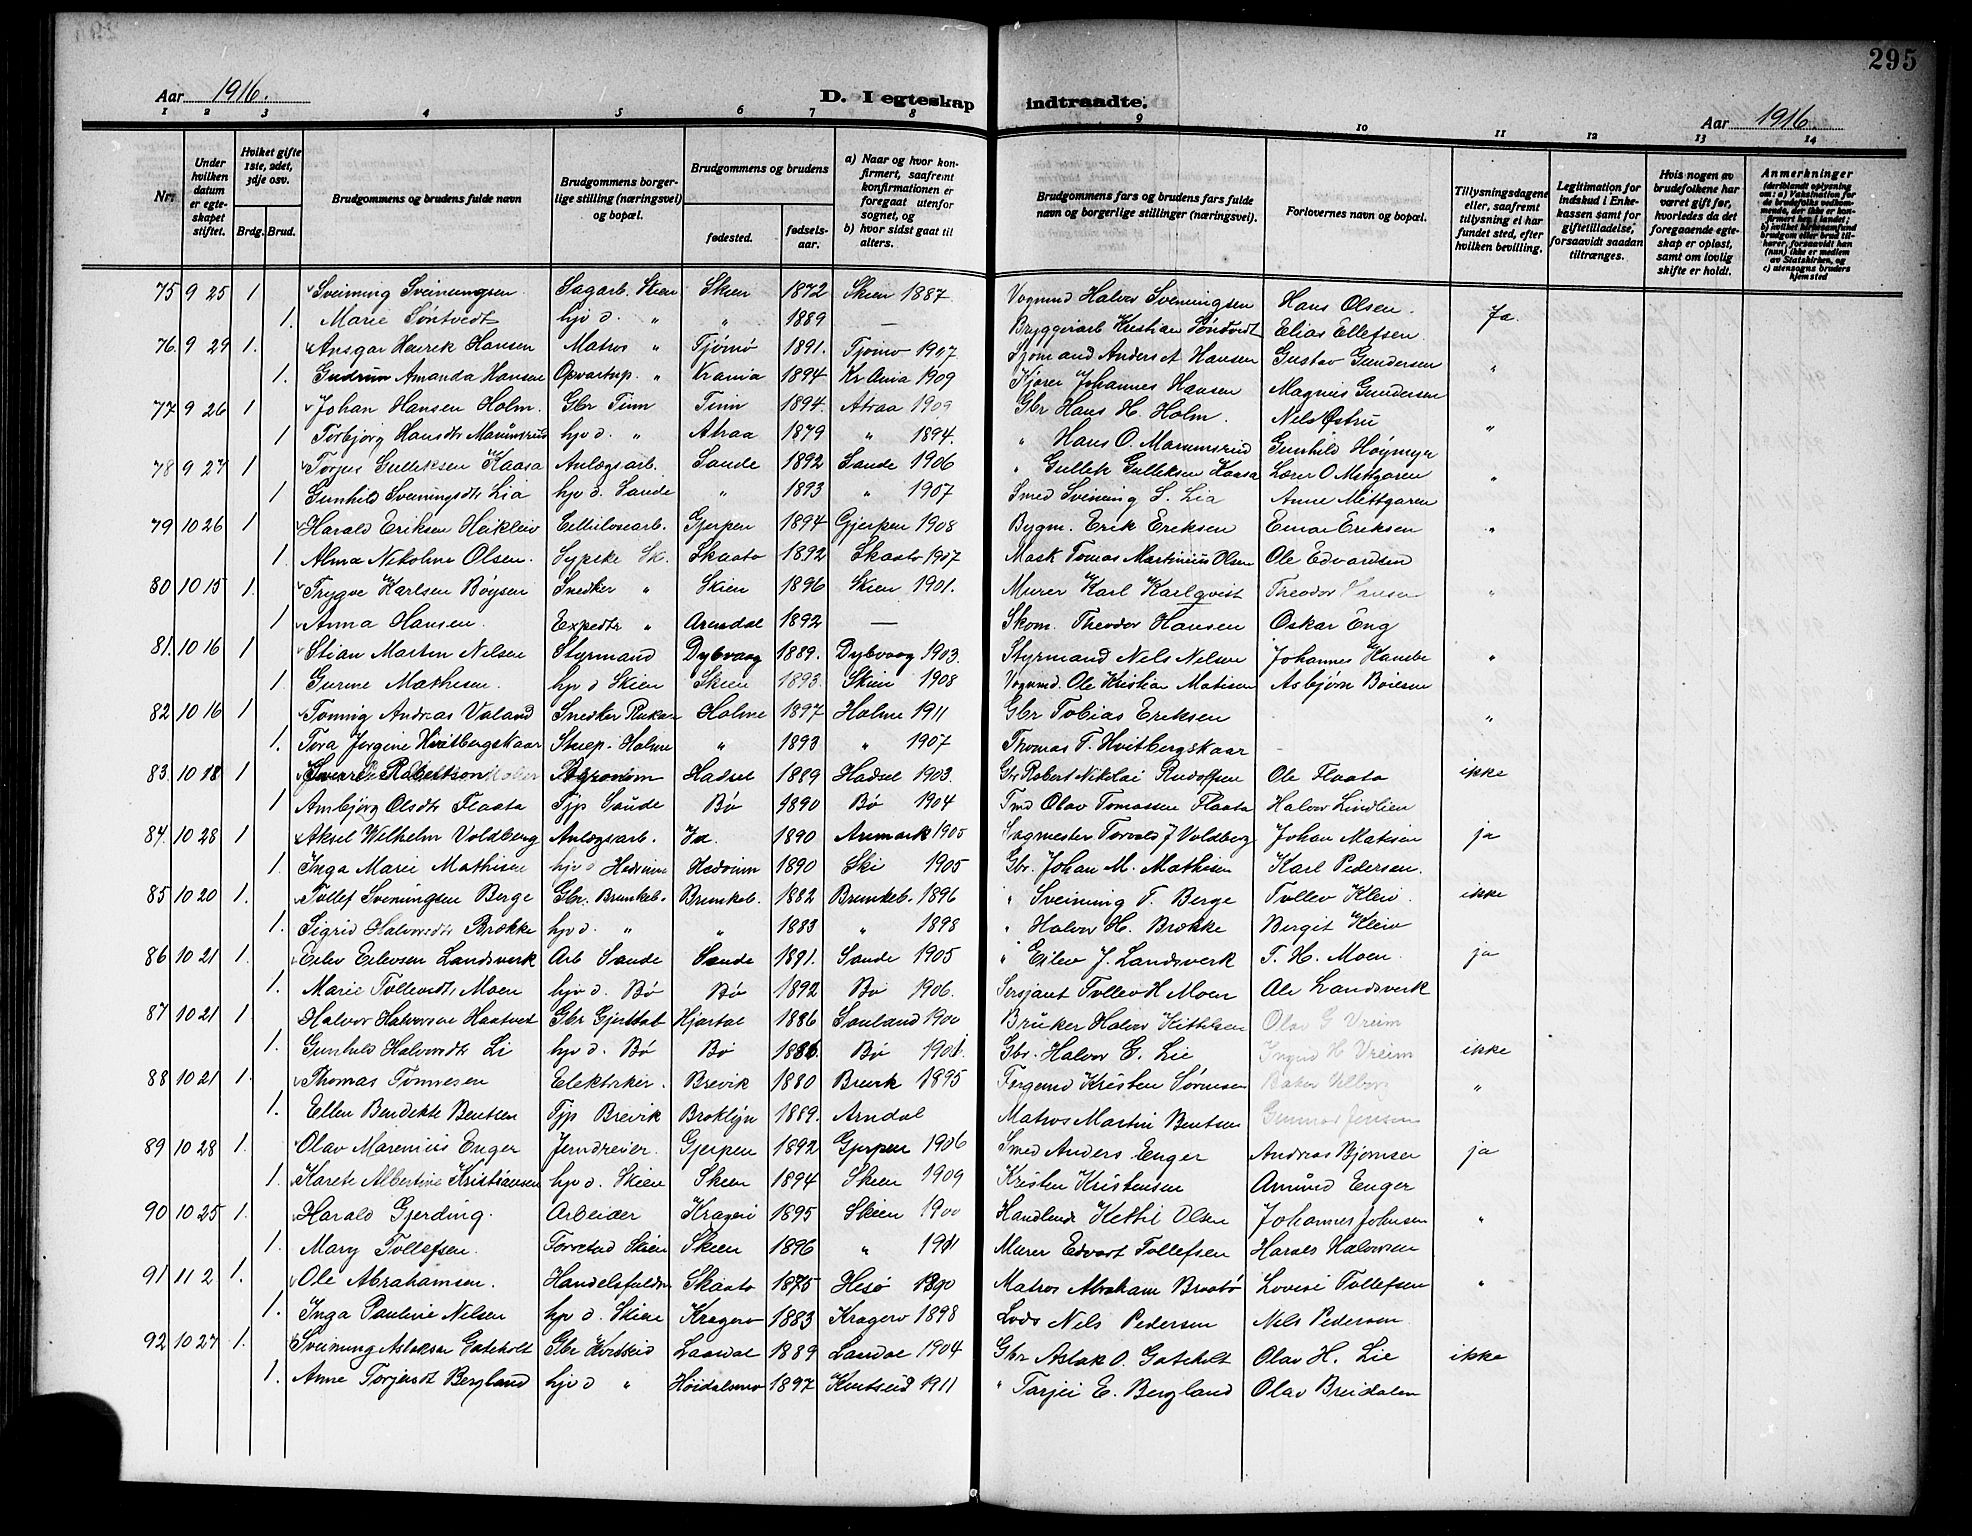 295
Aar 1916. D. I egteskap indtraadte. Aar 1916.
1 2 3 4 5 6 7 8 9 10 11 12 13 14
Nr.
Under hvilken datum er egteskapet stiftet.
Hvilket gifte 1ste, 2det, 3dje osv.
Brdg. Brud.
Brudgommens og brudens fulde navn
Brudgommens borgerlige stilling (næringsvei) og bopæl.
Brudgommens og brudens
fødested. fødselsaar.
a) Naar og hvor konfirmert, saafremt konfirmationen er foregaat utenfor sognet, og
b) hvor sidst gaat til alters.
Brudgommens fars og brudens fars fulde navn og borgerlige stillinger (næringsvei).
Forlovernes navn og bopæl.
Tillysningsdagene eller, saafremt tillysning ei har fundet sted, efter hvilken bevilling.
Legitimation for indskud i Enkekassen samt for giftetilladelse, forsaavidt saadan tiltrænges.
Hvis nogen av brudefolkene har været gift før, hvorledes da det foregaaende egteskap er opløst, samt om lovlig skifte er holdt.
Anmerkninger
75 9 25 1 Sveinung Sveinungsen Sagarb. Skien Skien 1872 Skien 1887 Vognmd Halvor Sveningsen Hans Olsen. Ja.
1. Marie Søntvedt hjv d. " " 1889 — Bryggeriarb Kristian Søndvedt Elias Ellefsen
76. 9 29 1. Ansgar Henrek Hansen Matros " Tjømø 1891. Tjømø 1907 Sjømand Anders Hansen Gustav Gundersen "
1. Gudrun Amanda Hansen Opvartnp. " Krania 1894 Kr Ania 1909 Kjører Johannes Hansen Magnus Gundersen
77 9 26 1 Johan Hansen Holm. Gbr Tinn Tinn 1894. Atraa 1909 Gbr Hans H. Holm. Nils Østru "
1 Torbjørg Hansdtr Marumsrud hjv d. " Atraa 1879 " 1894. " Hans O. Marumsrud Gunhild Høymyr
78 9 27 1 Torjus Gulleksen Kaasa Anlægsarb. Sande 1892 Sande 1906 " Gullek Gulleksen Kaasa Lærer O Mittgaren "
1 Gunhild Sveinungsdtr Lia hjv d. Sande " 1893 " 1907 Smed Sveinung S. Lia Anne Mittgaren
79 10 26 1 Harald Eriksen Heikleiv Cellulosearb. Gjerpen 1894 Gjerpen 1908 Bygm. Erik Eriksen Einar Eriksen "
1. Alma Nikoline Olsen. Sypike Sk. Skaato 1892 Skaato 1907 Mask Tomas Martinius Olsen Ole Edvardsen
80 10 15 1. Trygve Karlsen Bøysen Snedker " Skien 1896 Skien 1901. Murer Karl Karlqvist Theodor Hansen "
1 Anna Hansen. Expedtr " Arendal 1892 — Skom. Theodor Hansen Oskar Eng
81. 10 16 1 Stian Marten Nilsen Styrmand Dybvaag 1889. Dybvaag 1903. Styrmand Nels Nelsen Johannes "
1. Gurine Mathisen. hjv d Skien Skien 1893. Skien 1908 Vognmd. Ole Kristian Matisen Asbjørn Boiesen
82 10 16 1 Tønnig Andreas Valand Snedker Rukan Holme 1897 Holme 1911 Gbr Tobias Eriksen "
1. Tora Jorgine Hvitbergskaar Stuep. Holme " 1893 " 1907 Thomas T. Hvitbergskaar
83. 10 18 1 Robertson Agronom Hadsel 1889 Hadsel 1903. Gbr Robert Nikolai Rudolfsen Ole Flaata ikke
1 Ambjørg Olsdtr Flaata Tjp Saude Bø 1890 Bø 1904 Tmd Olav Tomassen Flaata Halvor Lindlien
84. 10 28 1 Aksel Wilhelm Voldberg Anlægsarb. Id. 1890 Aremark 1905 Sagmester Torvald J Voldberg Johan Matisen ja
1. Inga Marie Mathisen hjv d Hedrum Hedrum 1890 Ski 1905 Gbr. Johan M. Mathisen Karl Pedersen.
85 10 20 1. Tollef Sveningsen Berge Gbr. Brunkeb. Brunkeb. 1882 Brunkeb. 1896 " Sveinung T. Berge Tollev Kleiv. ikke
1. Sigrid Halvorsdtr Brække hjv d. " " 1883 " 1898 " Halvor H. Brække Bergit Kleiv
86 10 21 1. Eilev Eilevsen Landsverk Arb Sande Sande 1891. Sande 1905 " Eilev J. Landsverk T. H. Moen. ja
1. Marie Tollevsdtr Moen hjv d. Bø Bø 1892 Bø 1906. Sersjant Tollev H Moen Ole Landsverk
87 10 21 1. Halvor Halvorsen Haatveit Gbr Gjerstal Hjartal 1886 Sauland 1900 Bruker Halvor Kittilsen Olav G Vreim
1. Gunhild Halvorsdtr Li hjv d. Bø Bø 1886. Bø 1901. Gbr. Halvor E. Lie Ingrid H Vreim ikke
88 10 21 1. Thomas Tønnesen Elektriker. Brevik 1880 Brevik 1895 Færgemd Kristen Sørensen Baker "
1. Ellen Bendikte Bentsen Tjp Brevik Broklyn 1889. Arndal Matros Martin Bentsen Gunnar Jensen
89 10 28 1. Olav Marenius Enger Jerndreier. Gjerpen 1892 Gjerpen 1906 Smed Anders Enger Andreas Bjørnsen ja
1. Karete Albertine Kristiansen hjv d. Skien Skien 1894 Skien 1909 Kristen Kristensen Amund Enger
90 10 25 1. Harald Gjerding. Arbeider Kragerø 1895 Skien 1900 Handlende Kettil Olsen Johannes Johnsen "
1. Mary Tollefsen. Torvstad Skien Skien 1896 " 1911 Murer Edvart Tollefsen Harals Halvorsen
91 11 2 1. Ole Abrahamsen. Handelsfuldm Skaato 1875 Hesø 1890 Matros Abraham Braatø Lovise Tollefsen "
1. Inga Pauline Nilsen hjv d. Skien Kragerø 1883 Kragerø 1898 Lods Nels Pedersen Nils Pedersen.
92 10 27 1. Sveinung Aslaksen Gateholt Gbr Kvitseid Laardal 1889 Lardal 1904 Gbr Aslak O. Gateholt Olav H. Lie ikke
1. Anne Torjesdt Bergland hjv d " Høidalsmo 1897 Kvitseid 1911 " Tarjei E. Bergland Olav Breidalen